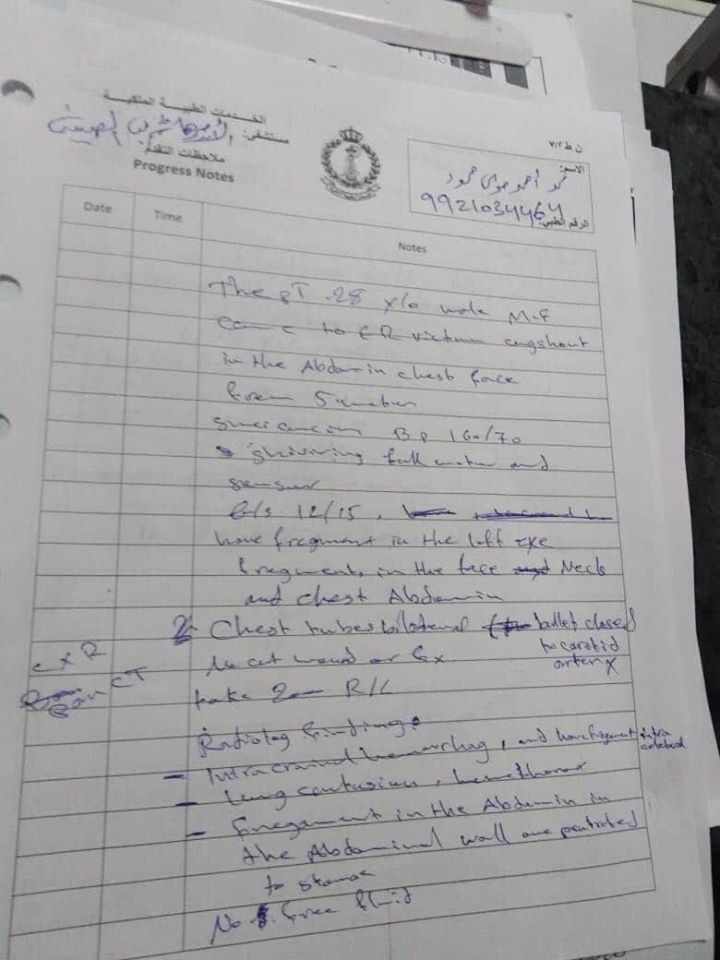 الخدمات الطبية الملكية
مستشفى:
ملاحظات التقدم
Progress Notes
ن ط ٧/٢
الاسم: أحمد موسى حمود
الرقم الطبي: 9921034464
Date Time Notes
The PT 28 y/o male M.F
came to ER victim
in the Abdomin chest face
from 5 meter
BP 160/70
shiviring full motor and
sensur
12/15,
have fregment in the left eye
fregments in the face Neck
and chest Abdomin
2 Chest tubes bilateral bullet closed
to carotid
artery
No cut wound or Fx
CXR
CT
take R/L
Radiolog findings
- Intracranial hemorrhag, and have fregment intra
- Lung contusion, hemothorax
- fregament in the Abdomin in
the Abdominal wall one pentrated
to
No free fluid